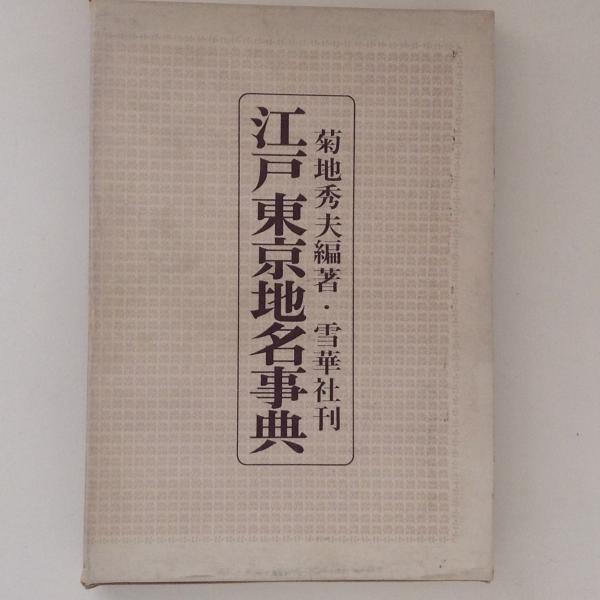 菊地秀夫編著・雪華社刊
江戸東京地名事典